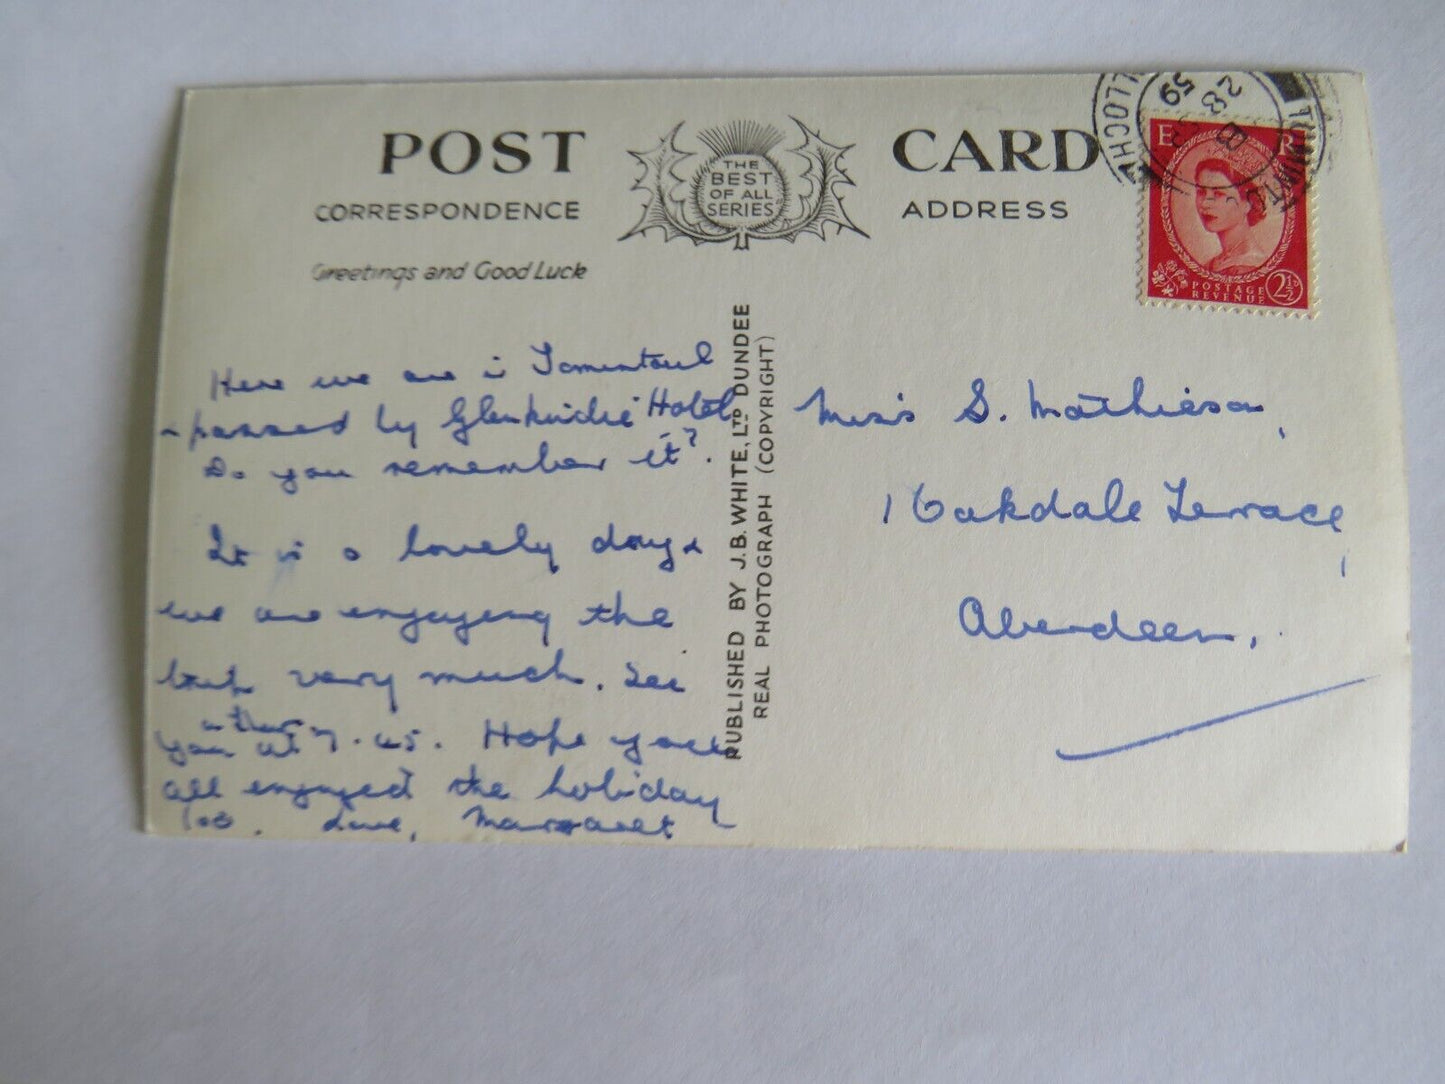 POST CARD
THE
BEST
OF ALL
SERIES
CORRESPONDENCE
ADDRESS
Greetings and Good Luck
Here we are in Tomintoul
+ passed by Glenkindie Hotel
Do you remember it?.
It is a lovely day &
we are enjoying the
very much. See
you at 7.45. Hope you
all enjoyed the holiday
too. Love, Margaret
PUBLISHED BY J.B. WHITE, LTD DUNDEE
REAL PHOTOGRAPH (COPYRIGHT)
Miss S. Mathieson,
1 Oakdale Terrace,
Aberdeen,.
E R
POSTAGE
REVENUE
2½D
28
59